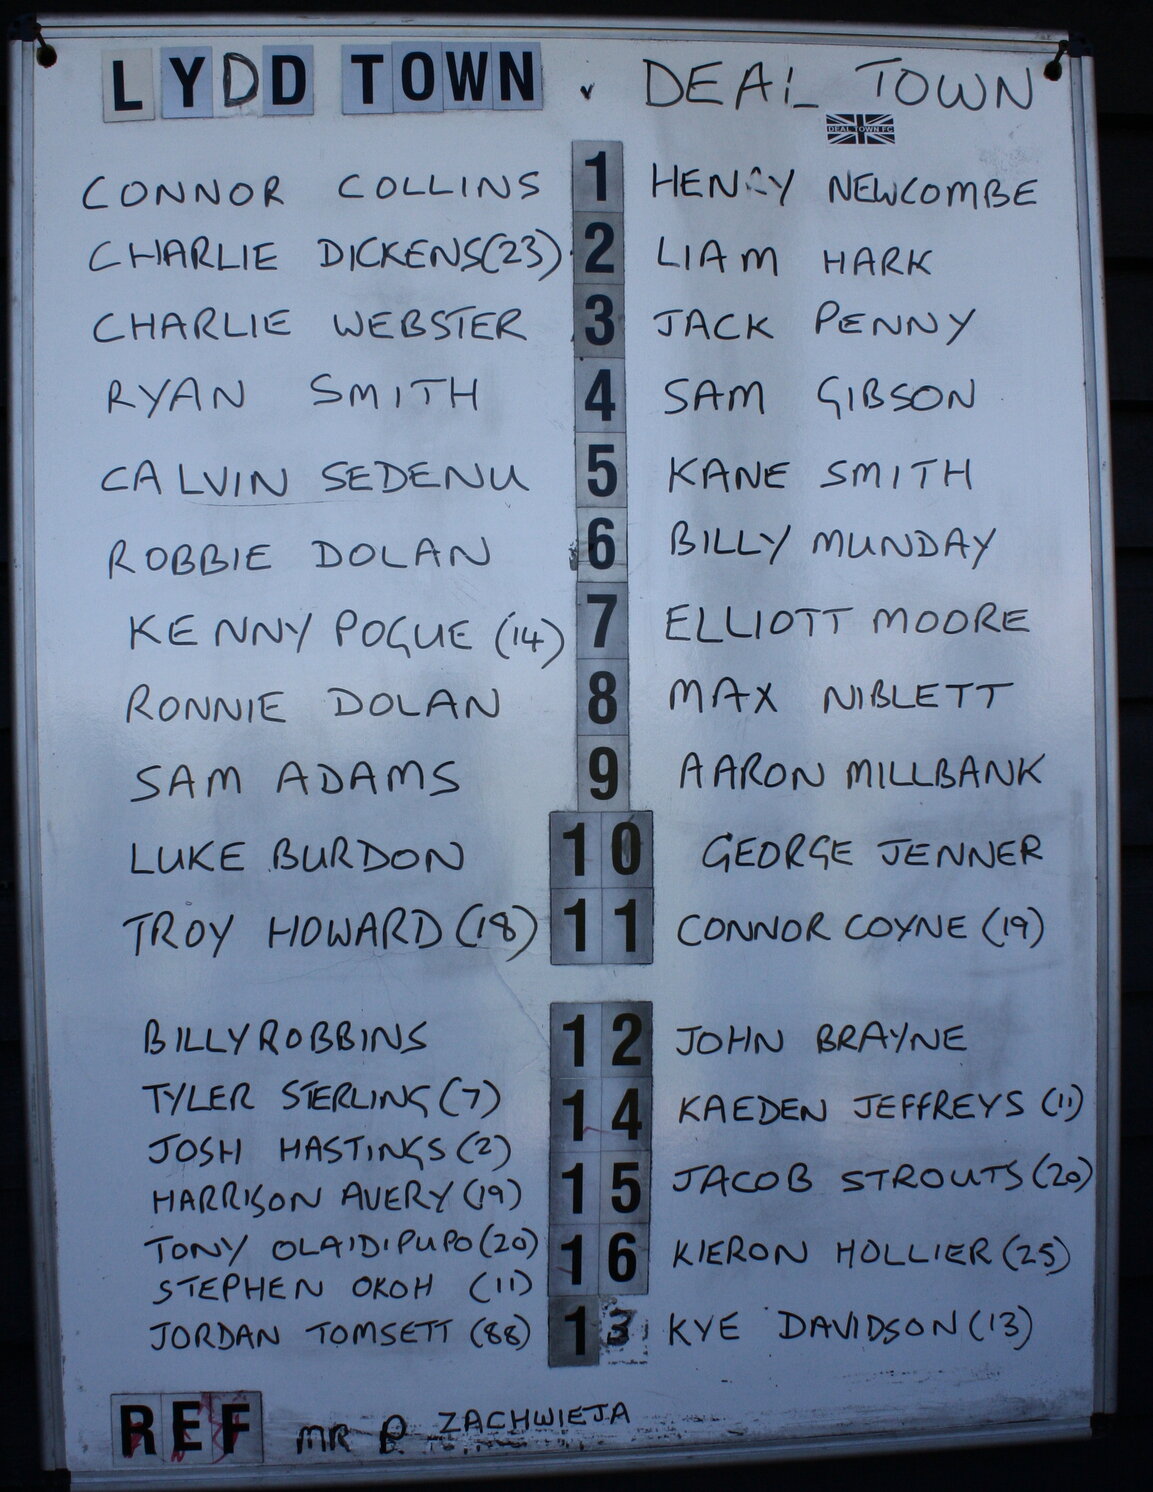 LYDD TOWN v DEAL TOWN
DEAL TOWN FC
CONNOR COLLINS 1 HENRY NEWCOMBE
CHARLIE DICKENS(23) 2 LIAM HARK
CHARLIE WEBSTER 3 JACK PENNY
RYAN SMITH 4 SAM GIBSON
CALVIN SEDENU 5 KANE SMITH
ROBBIE DOLAN 6 BILLY MUNDAY
KENNY POGUE (14) 7 ELLIOTT MOORE
RONNIE DOLAN 8 MAX NIBLETT
SAM ADAMS 9 AARON MILLBANK
LUKE BURDON 10 GEORGE JENNER
TROY HOWARD (18) 11 CONNOR COYNE (19)
BILLY ROBBINS 12 JOHN BRAYNE
TYLER STERLING (7) 14 KAEDEN JEFFREYS (11)
JOSH HASTINGS (2)
HARRISON AVERY (19) 15 JACOB STROUTS (20)
TONY OLAIDIPUPO (20) 16 KIERON HOLLIER (25)
STEPHEN OKOH (11)
JORDAN TOMSETT (88) 13 KYE DAVIDSON (13)
REF MR P. ZACHWIEJA